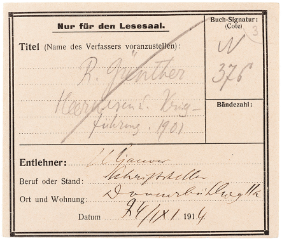 Nur für den Lesesaal.
Buch-Signatur:
(Cote)
Titel (Name des Verfassers voranzustellen):
N
3
R. Günther
376
Heerwesen u. Krieg-
führung. 1901
Bändezahl:
Entlehner:
Beruf oder Stand: Schriftsteller
Ort und Wohnung:
Datum 24/IX 1914